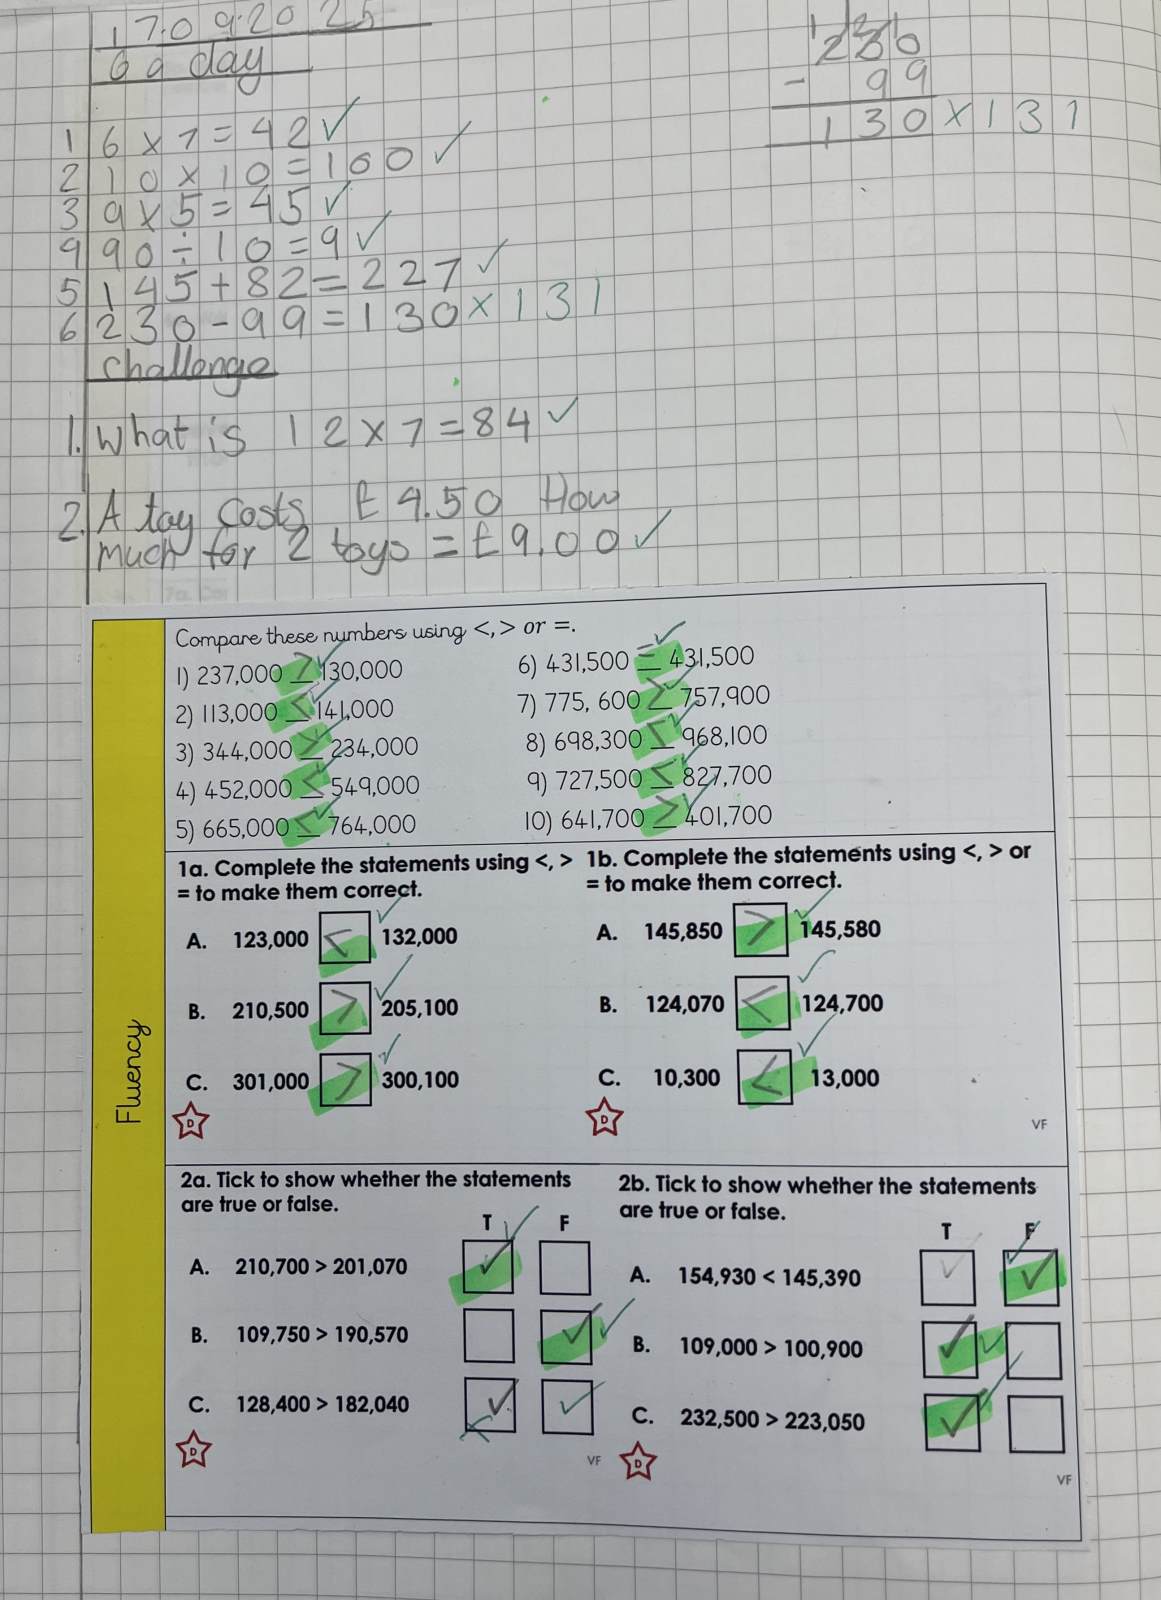 17.09.2025
6 a day
1 2 3 0
- 9 9
1 3 0 x 1 3 1
1 6 x 7 = 42 ✓
2 10 x 10 = 100 ✓
3 9 x 5 = 45 ✓
4 90 ÷ 10 = 9 ✓
5 145 + 82 = 227 ✓
6 230 - 99 = 130 x 131
Challenge
1. What is 12 x 7 = 84 ✓
2. A toy costs £4.50 How
much for 2 toys = £9.00 ✓
Compare these numbers using <, > or =.
1) 237,000 > 130,000
2) 113,000 < 141,000
3) 344,000 > 234,000
4) 452,000 < 549,000
5) 665,000 < 764,000
6) 431,500 = 431,500
7) 775, 600 > 757,900
8) 698,300 < 968,100
9) 727,500 < 827,700
10) 641,700 > 401,700
Fluency
1a. Complete the statements using <, >
= to make them correct.
A. 123,000 < 132,000
B. 210,500 > 205,100
C. 301,000 > 300,100
D
1b. Complete the statements using <, > or
= to make them correct.
A. 145,850 > 145,580
B. 124,070 < 124,700
C. 10,300 < 13,000
D
VF
2a. Tick to show whether the statements
are true or false.
T F
A. 210,700 > 201,070 ✓
B. 109,750 > 190,570 ✓
C. 128,400 > 182,040 ✓ ✓
D
VF
2b. Tick to show whether the statements
are true or false.
T F
A. 154,930 < 145,390 ✓ ✓
B. 109,000 > 100,900 ✓
C. 232,500 > 223,050 ✓
D
VF